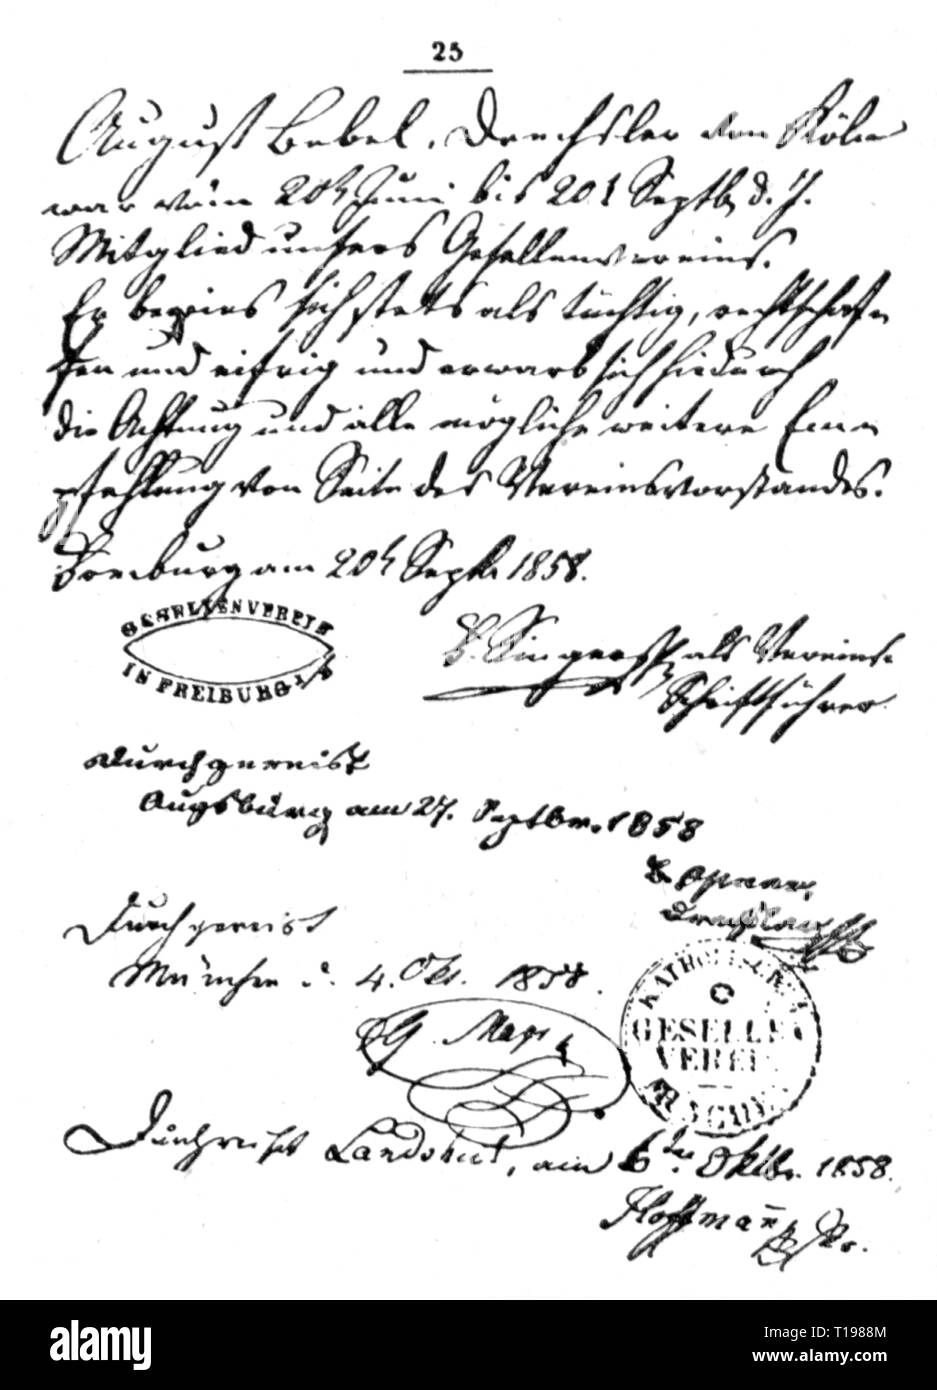 25
August Bebel, Drechsler von Köln
war vom 20t Juni bis 20t Septb. d. J.
Mitglied unsers Gesellenvereins.
Er bewies sich stets als tüchtig, rechtschaf-
fen und eifrig und erwarb sich hiedurch
die Achtung und alle mögliche weitere Em-
pfehlung von Seite des Vereinsvorstandes.
Freiburg am 20t Septb. 1858.
GESELLENVEREIN
IN FREIBURG
als Vereins-
Schriftführer.
Durchgereist
Augsburg am 27. Septbr. 1858
Durchgereist
München d. 4. Okt. 1858.
KATHOL.
GESELLEN
VEREIN
MÜNCHEN
G. Mayr
Durchreist Landshut, am 6ten Oktbr. 1858.
Hoffmann
alamy
alamy
Image ID: T1988M
www.alamy.com